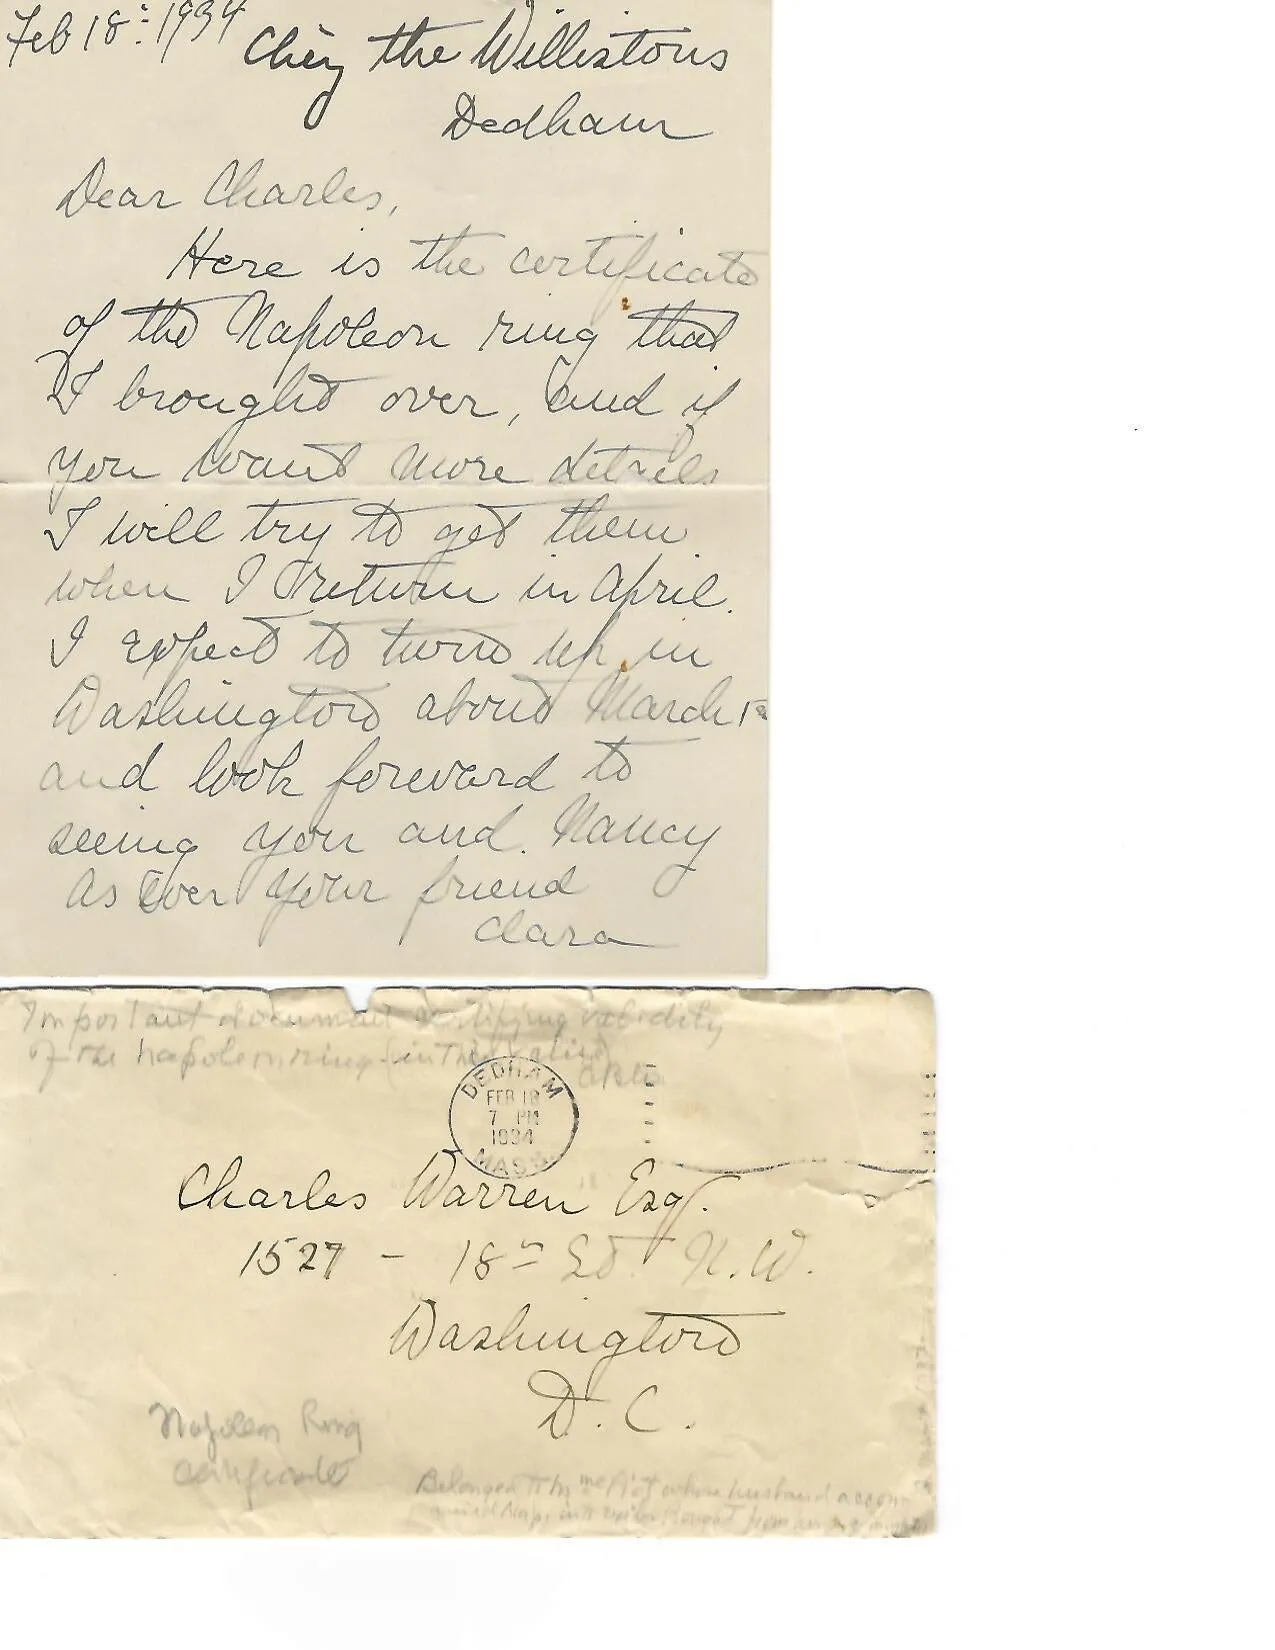 Feb 18th 1934
Chez the Willistons
Dedham
Dear Charles,
Here is the certificate
of the Napoleon ring that
I brought over, and if
you want more details
I will try to get them
when I return in April.
I expect to turn up in
Washington about March 1st
and look forward to
seeing you and Nancy
As Ever your friend
Clara
Important document certifying validity
of the napoleon ring (in this
DEDHAM
FEB 18
7 PM
1934
MASS
Charles Warren Esq.
1527 - 18th St. N.W.
Washington
D.C.
Napoleon Ring
certificate
Belonged to Mme whose husband accom-
panied Nap. into exile. bought from her